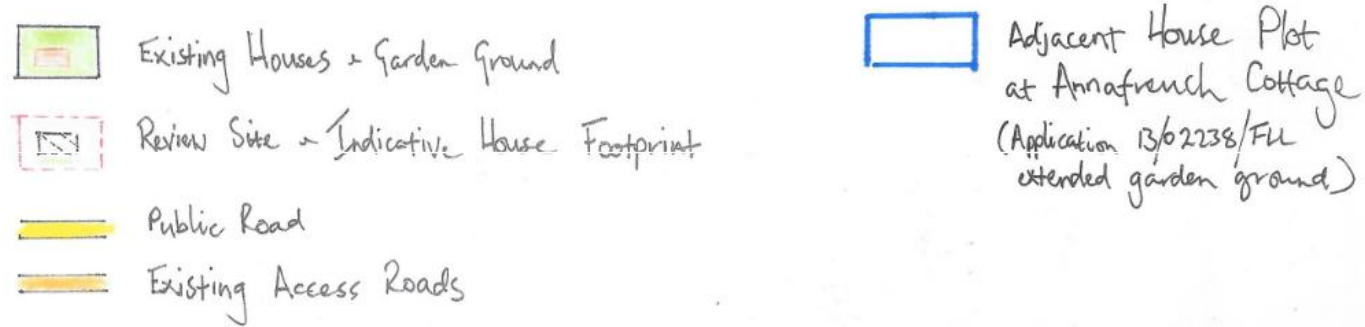 Existing Houses & Garden Ground
Review Site & Indicative House Footprint
Public Road
Existing Access Roads
Adjacent House Plot
at Annafrench Cottage
(Application 13/02238/FLL
extended garden ground)